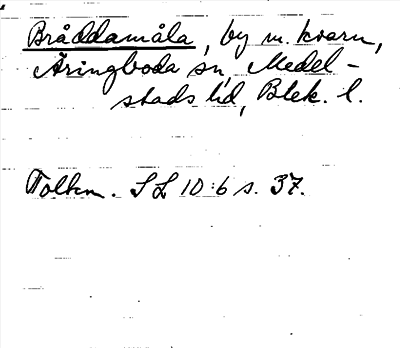 Bråddamåla, by m. kvarn,
Äringboda sn, Medel-
stads hd, Blek. l.
Tolkn. SL 10:6 s. 37.